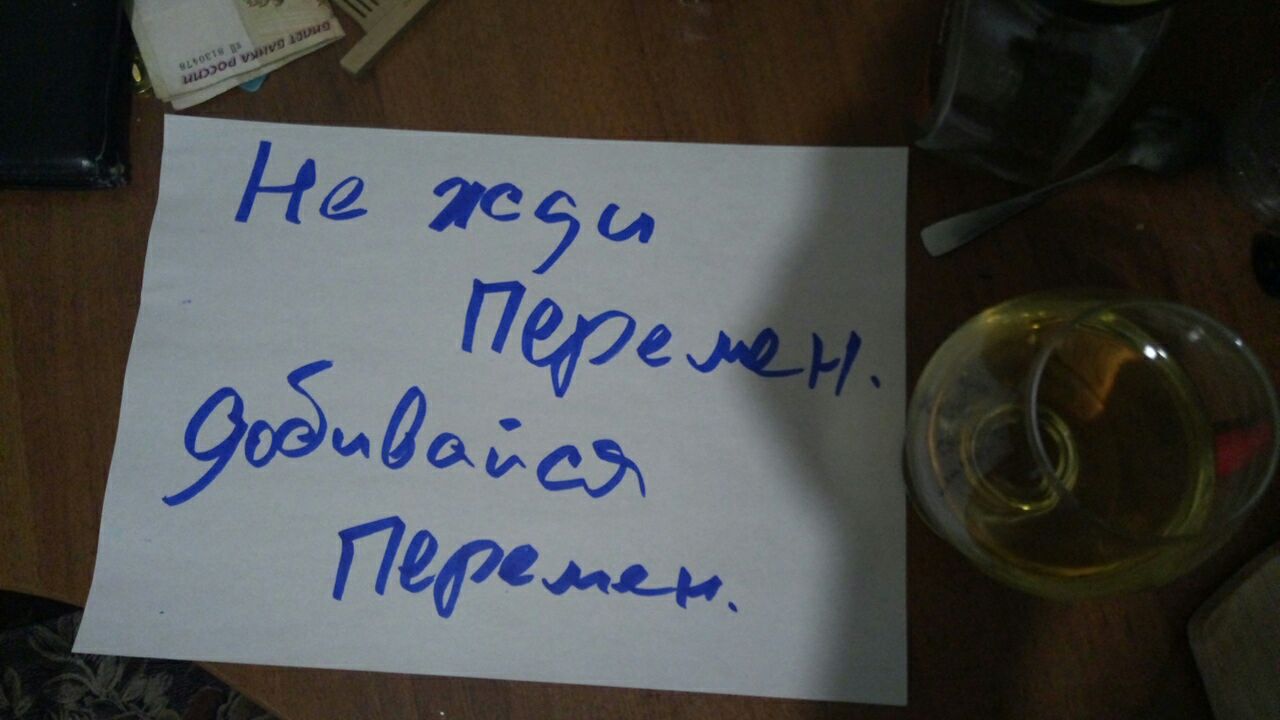 БИЛЕТ БАНКА РОССИИ
Не жди
Перемен.
добивайся
Перемен.